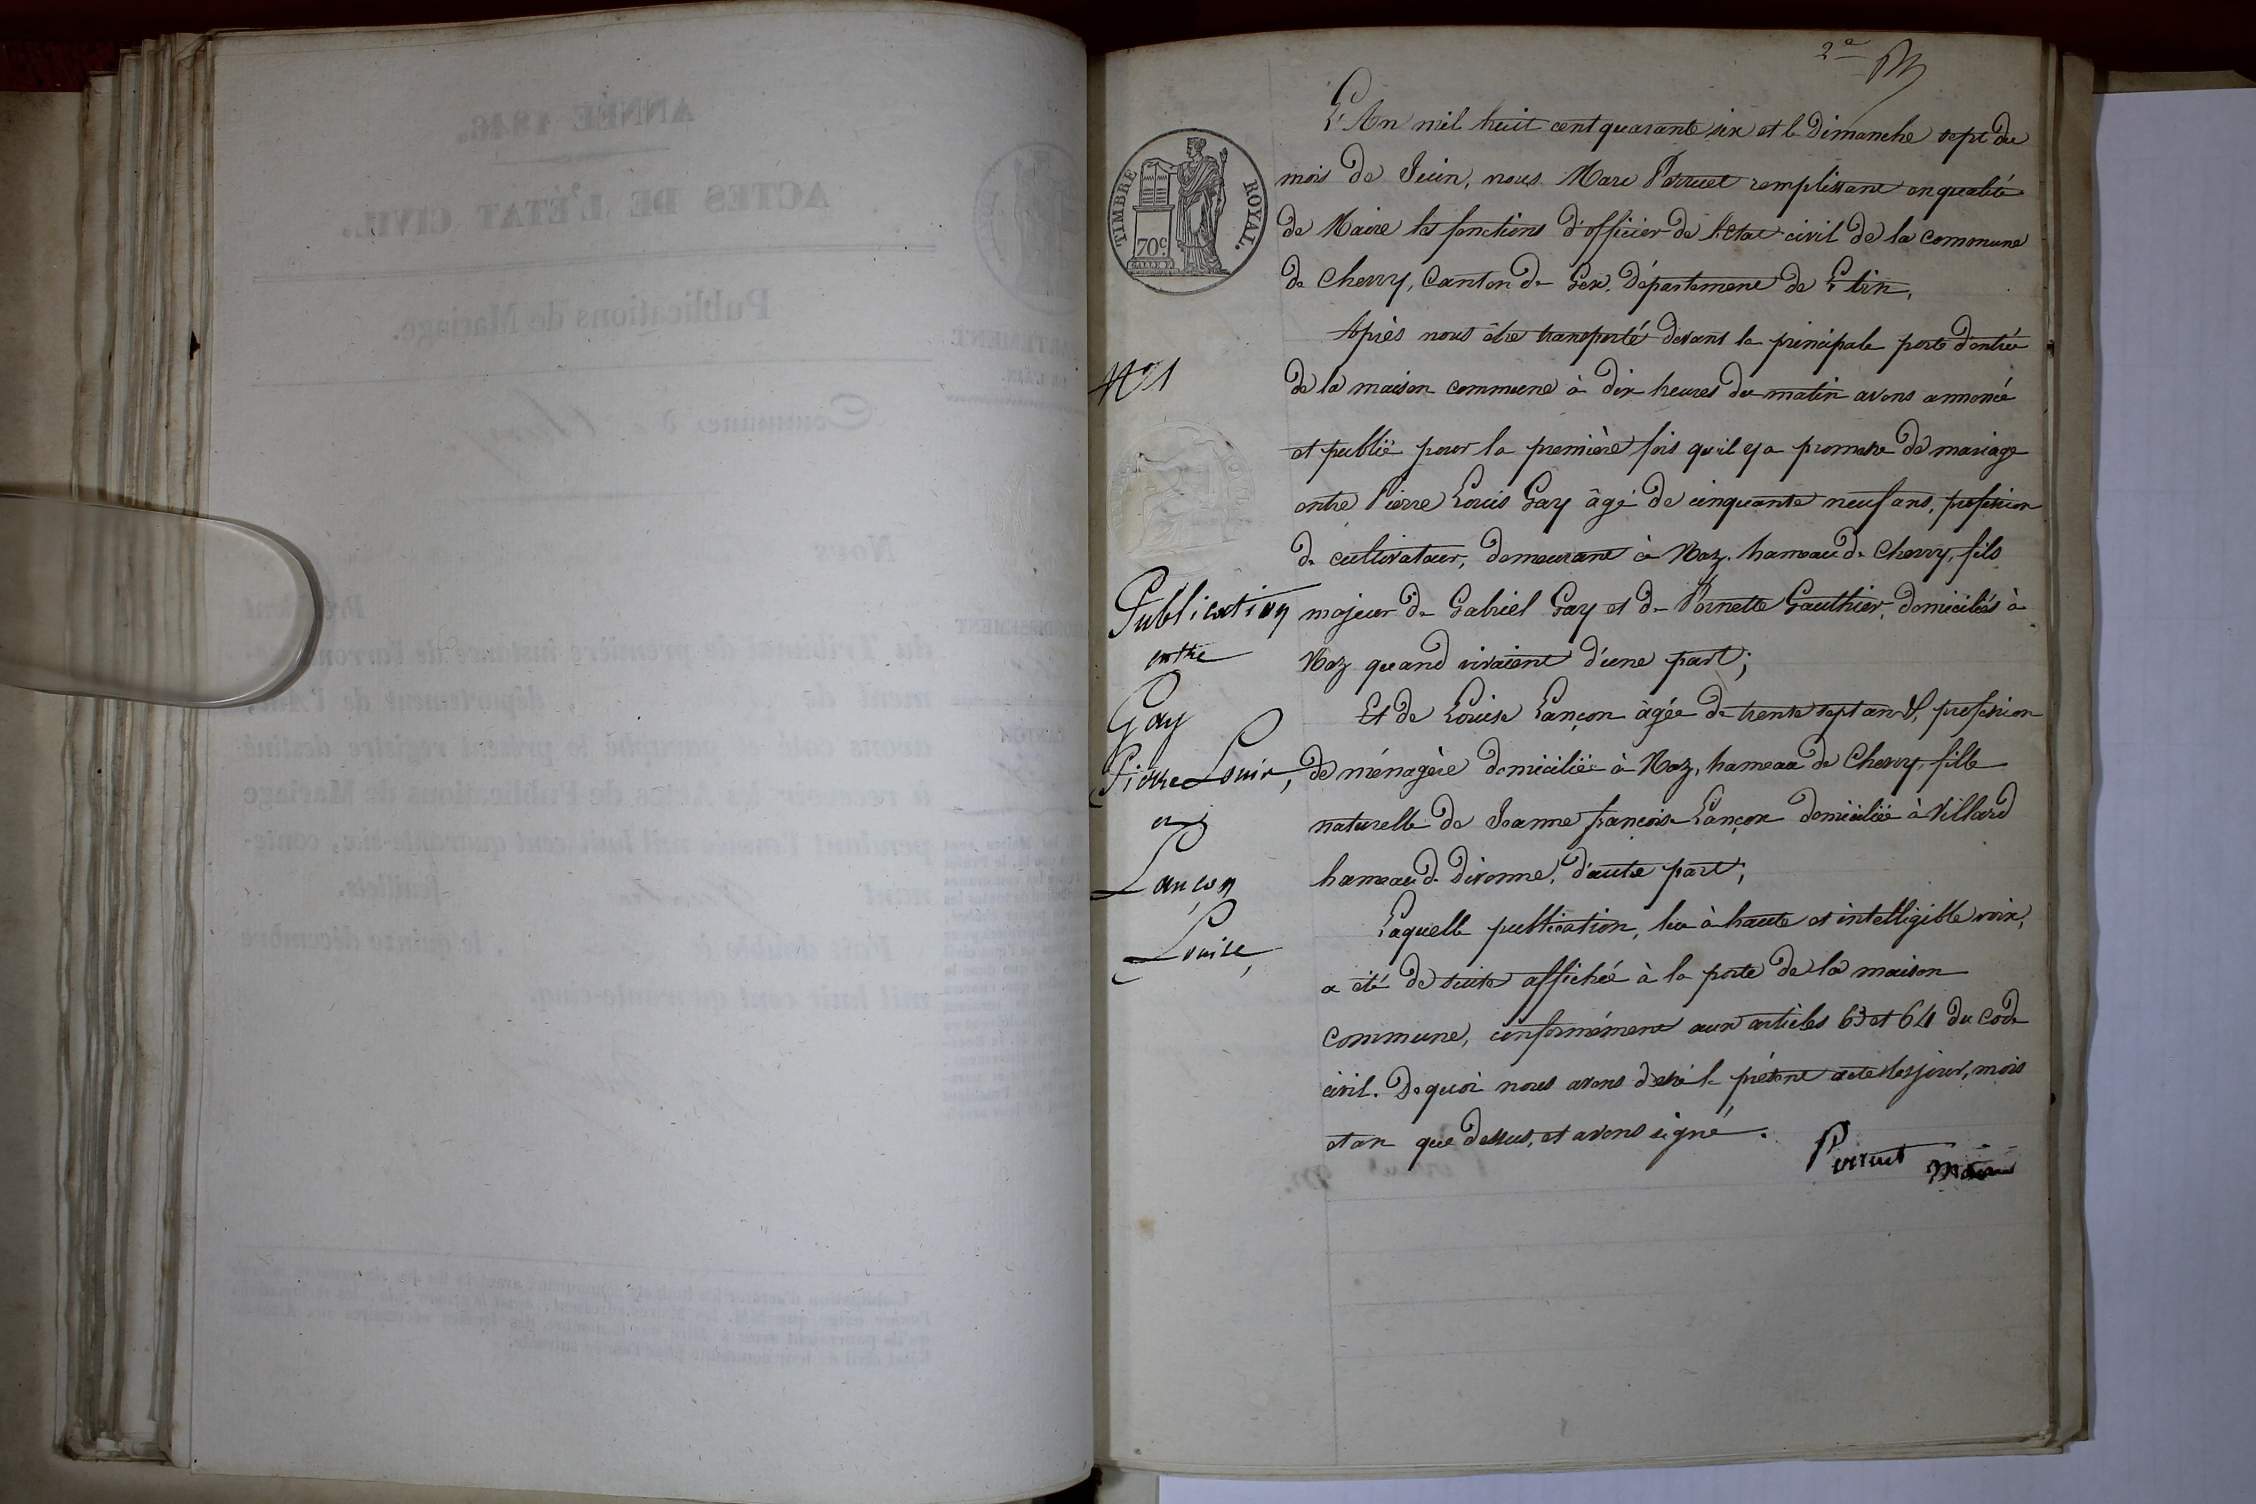 2e
L'An mil huit cent quarante six et le Dimanche sept du
mois de Juin, nous Marc Perruet remplissant en qualité
de Maire les fonctions d'officier de l'Etat civil de la commune
de Chevry, Canton de Gex, département de L'Ain,
TIMBRE ROYAL.
70c
Après nous être transporté devant la principale porte d'entrée
No 1
de la maison commune à dix heures du matin avons annoncé
et publié pour la première fois qu'il y a promesse de mariage
entre Pierre Louis Gay âgé de cinquante neuf ans, profession
de cultivateur, demeurant à Naz, hameau de Chevry, fils
majeur de Gabriel Gay et de Pernette Gauthier, domiciliés à
Naz quand vivaient d'une part;
Et de Louise Lançon âgée de trente sept ans, profession
de ménagère domiciliée à Naz, hameau de Chevry, fille
naturelle de Jeanne françoise Lançon domiciliée à Villard
hameau de divonne, d'autre part;
Laquelle publication, lue à haute et intelligible voix,
a été de suite affichée à la porte de la maison
commune, conformément aux articles 63 et 64 du code
civil. De quoi nous avons dressé le présent acte les jour, mois
et an que dessus, et avons signé.
Perruet Maire
Publication
entre
Gay
Pierre Louis,
et
Lançon
Louise,
ANNÉE 1846.
ACTES DE L'ÉTAT CIVIL.
Publications de Mariage.
Commune de Chevry
Nous
Président
du Tribunal de première instance de l'arrondisse-
ment de , département de l'Ain,
avons coté et paraphé le présent registre destiné
à recevoir les Actes de Publications de Mariage
pendant l'année mil huit cent quarante-six, conte-
nant feuillets.
, le quinze décembre
mil huit cent quarante-cinq.